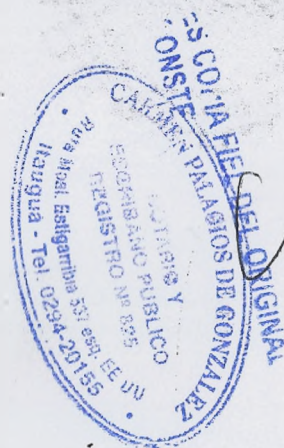 ES COPIA FIEL DEL ORIGINAL
CONSTE
CARMEN PALACIOS DE GONZALEZ
NOTARIO Y
ESCRIBANO PUBLICO
REGISTRO Nº 895
Ruta Mcal. Estigarribia 537 esq. EE UU
Itaugua - Tel. 0294-20155